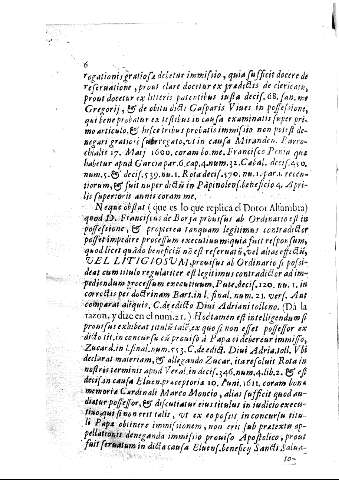 6
rogationis gratiosa debetur immissio, quia sufficit docere de
reseruatione, prout clare docetur ex prædictis de clericatu,
prout docetur ex litteris patentibus iusta decis. 68. san. me
Gregorij, & de obitu dicti Gasparis Viues in possessione,
qui bene probatur ex testibus in causa examinatis super pri
mo articulo. & hisce tribus probatis immissio non potest de-
negari gratiosi subrogato, vt in causa Miranden. Parro-
chialis 17. Maij 1600. coram bo. me. Francisco Penia quæ
habetur apud Garciã par. 6. cap. 4. num. 32. Cabal. decis. 450.
num. 5. & decis. 539. nu. 1. Rota decis. 570. nu. 1. par. 1. recen-
tiorum, & fuit nuper dictũ in Pãpinolẽs. beneficio 4. Apri-
lis superioris annis coram me.
Neque obstat (que es lo que replica el Dotor Altambia)
quod D. Franciscus de Borja prouisus ab Ordinario est in
possessione, & propterea tanquam legitimus contradictor
posset impedire processum executiuum quia fuit responsum,
quod licet quãdo beneficiũ nõ est reseruatũ, vel alias effectũ,
VEL LITIGIOSUM, prouisus ab Ordinario si possi-
deat cum titulo regulariter est legitimus contradictor ad im-
pediendum processum executiuum, Pute. decis. 120. nu. 1. in
correctis per doctrinam Bart. in l. final. num. 21. vers. Aut
comparat aliquis, C. de edicto Diui Adriani tollen. (Da la
razon, y dize en el num. 21.) Hoc tamen est intelligendum si
prouisus exhibeat titulũ talẽ, ex quo si non esset possessor ex
dicto tit. in concursu cũ prouiso à Papa ei deberetur immissio,
Zucard. in l. final. num. 553. C. de edict. Diui Adria. toll. Vbi
declarat materiam, & allegando Zucar. ita resoluit Rota in
nostris terminis apud Veral. in decis. 346. num. 4. lib. 2. & est
decisũ in causa Eluen. præceptoria 10. Iuni. 1611. coram bonæ
memoriæ Cardinali Marco Moncio, alias sufficit quod au-
diatur possessor, & discutiatur eius titulus in iudicio execu-
tiuo qui si non erit talis, vt ex eo possit in concursu titu-
li Papa obtinere immissionem, non erit sub prætextu ap-
pellationis deneganda immissio prouiso Apostolico, prout
fuit seruatum in dicta causa Eluens. beneficij Sancti Salua-